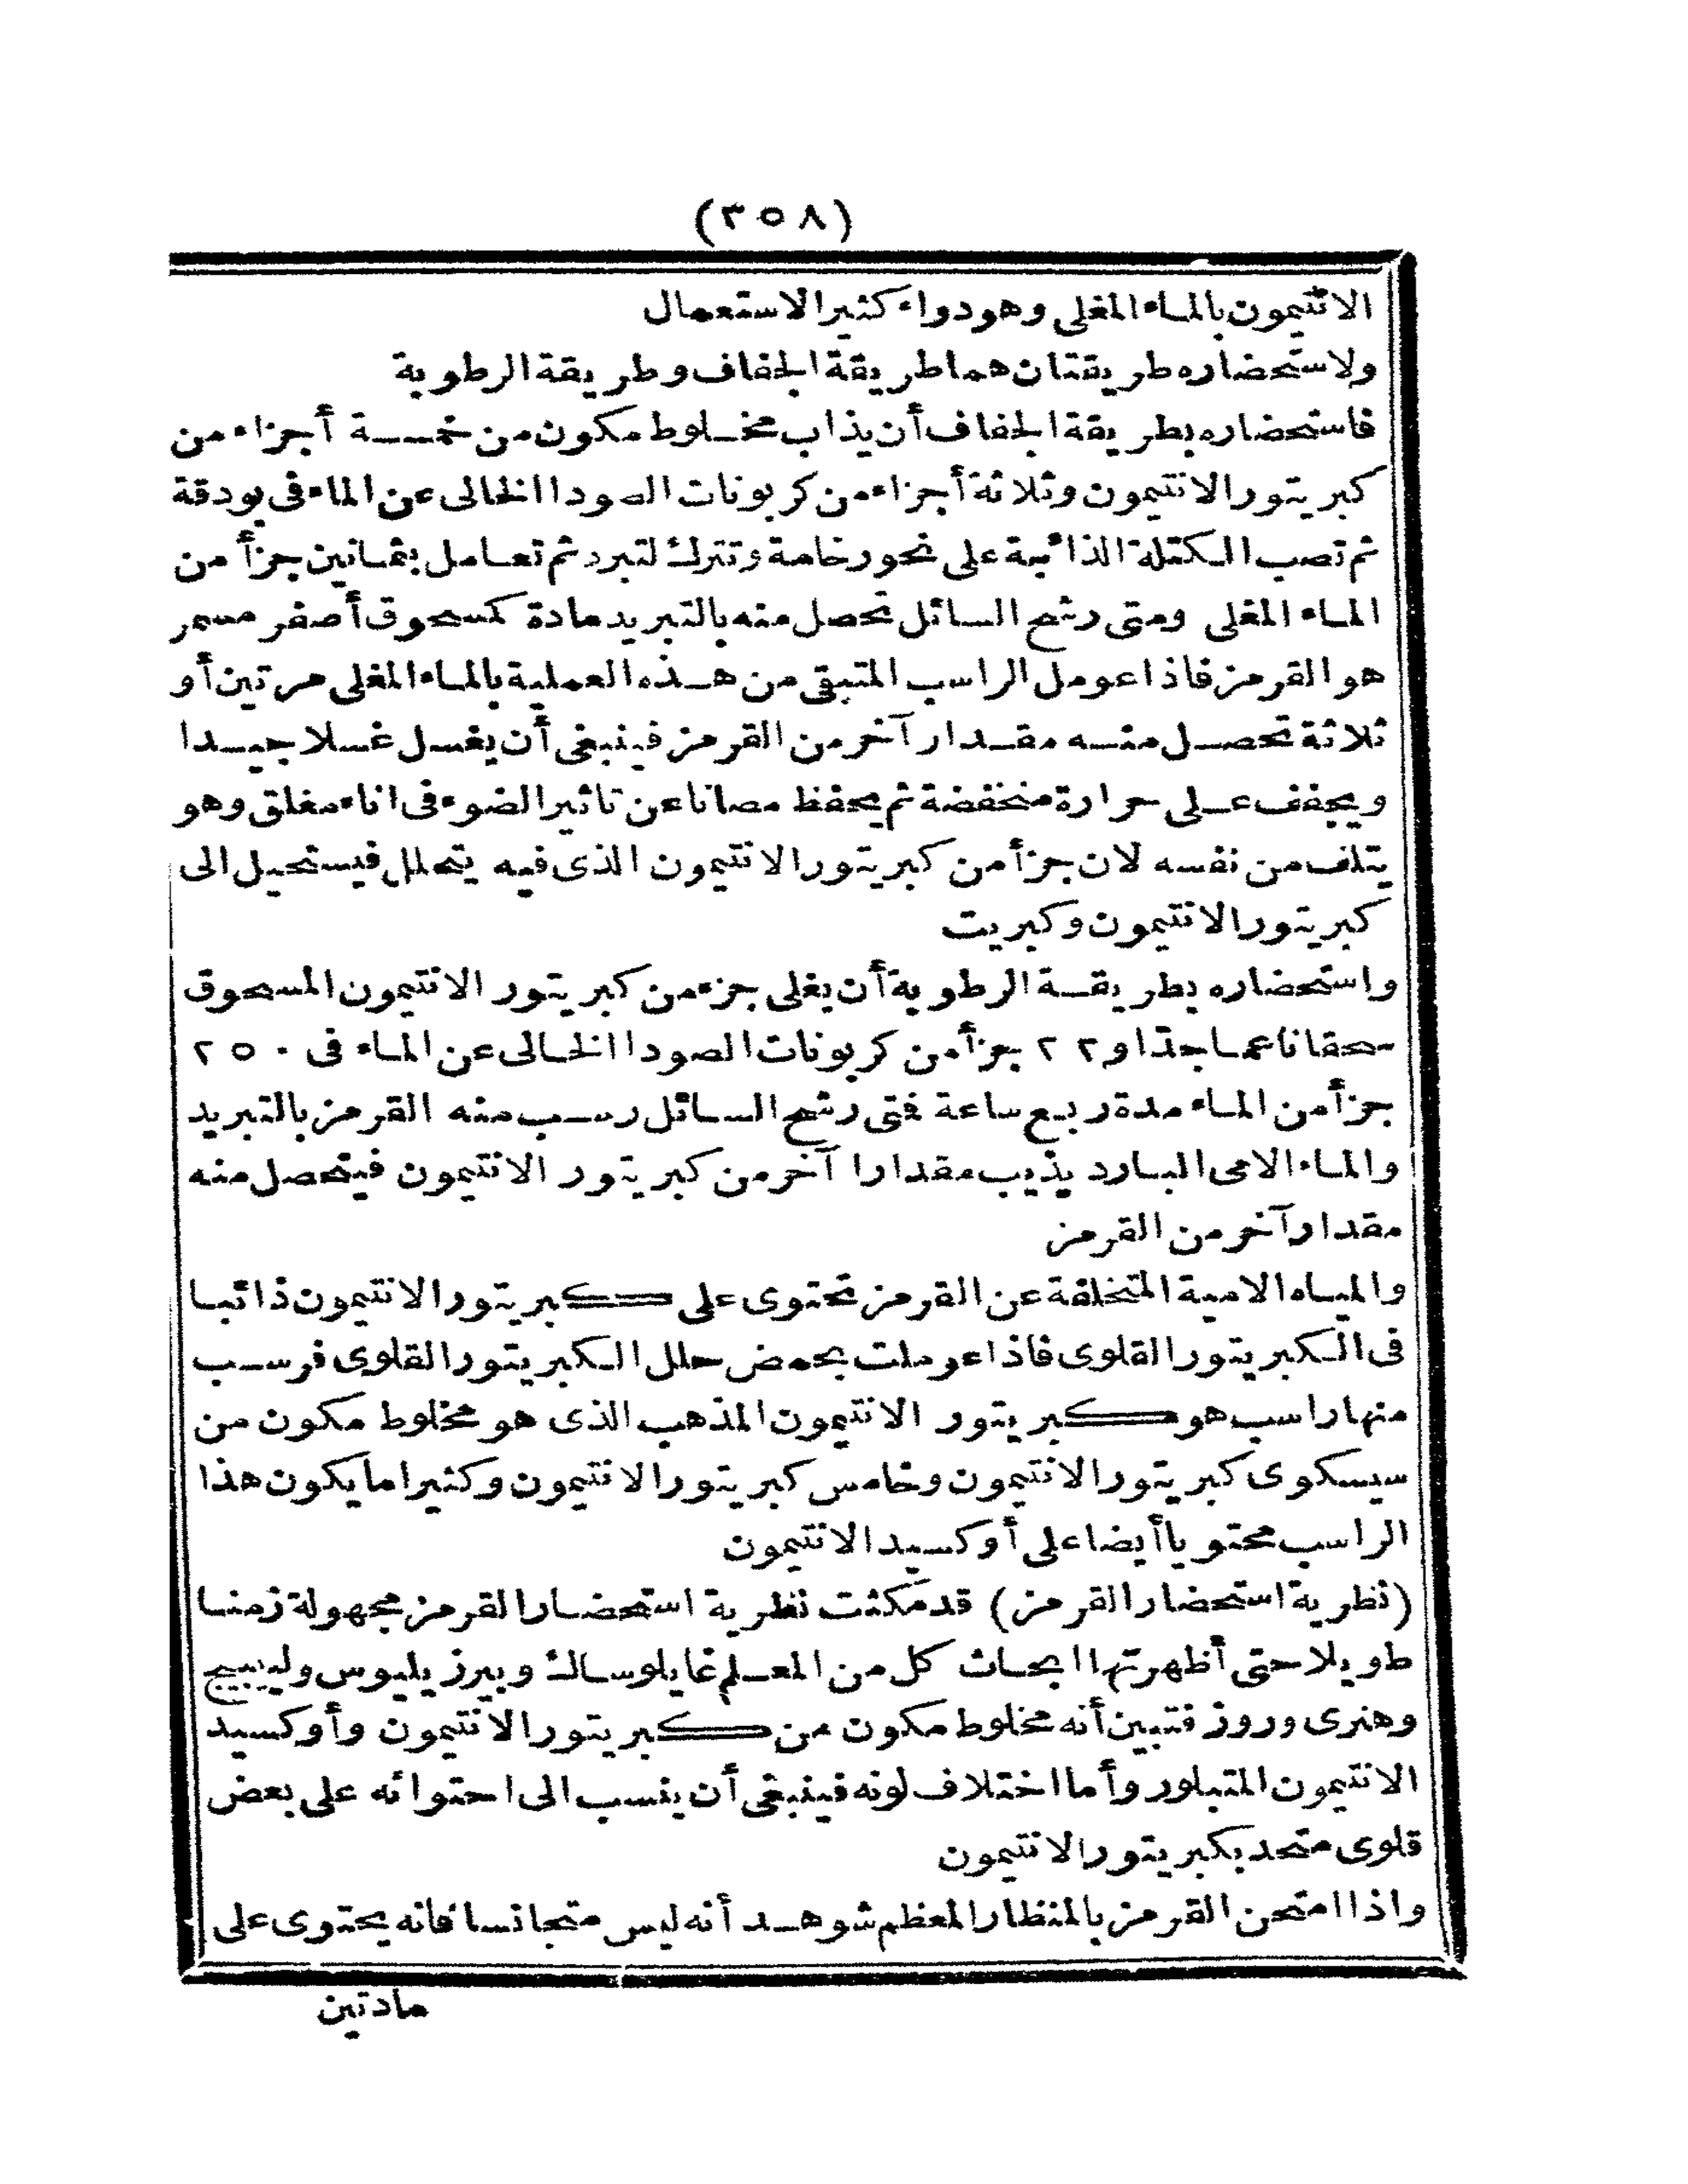 (٣٥٨)
الانتيمون بالماء المغلى وهو دواء كثير الاستعمال
ولاستحضاره طريقتان هما طريقة الجفاف وطريقة الرطوبة
فاستحضاره بطريقة الجفاف أن يذاب مخلوط مكون من خمسة أجزاء من
كبريتور الانتيمون وثلاثة أجزاء من كربونات الصودا الخالى عن الماء فى بودقة
ثم تصب الكتلة الذائبة على نحو رخامة وتترك لتبرد ثم تعامل بثمانين جزأ من
الماء المغلى ومتى رشح السائل تحصل منه بالتبريد مادة كمسحوق أصفر مسمر
هو القرمز فاذا عومل الراسب المتبقى من هذه العملية بالماء المغلى مرتين أو
ثلاثة تحصل منه مقدار آخر من القرمز فينبغى أن يغسل غسلا جيدا
ويجفف على حرارة منخفضة ثم يحفظ مصانا عن تاثير الضوء فى اناء مغلق وهو
يتلف من نفسه لان جزأ من كبريتور الانتيمون الذى فيه يتحلل فيستحيل الى
كبريتور الانتيمون وكبريت
واستحضاره بطريقة الرطوبة أن يغلى جزء من كبريتور الانتيمون المسحوق
سحقا ناعما جدّا و٢٢ جزأ من كربونات الصودا الخالى عن الماء فى ٢٥٠
جزأ من الماء مدة ربع ساعة فمتى رشح السائل رسب منه القرمز بالتبريد
والماء الامى البارد يذيب مقدارا آخر من كبريتور الانتيمون فيتحصل منه
مقدار آخر من القرمز
والمياه الامية المتخلفة عن القرمز تحتوى على كبريتور الانتيمون ذائبا
فى الكبريتور القلوى فاذا عوملت بحمض حلل الكبريتور القلوى فرسب
منها راسب هو كبريتور الانتيمون المذهب الذى هو مخلوط مكون من
سيسكوى كبريتور الانتيمون وخامس كبريتور الانتيمون وكثيرا ما يكون هذا
الراسب محتويا أيضا على أوكسيد الانتيمون
(نظرية استحضار القرمز) قد مكثت نظرية استحضار القرمز مجهولة زمنا
طويلا حتى أظهرتها ابحاث كل من المعلم غايلوساك وبيرزيليوس وليبيج
وهنرى وروز فتبين أنه مخلوط مكون من كبريتور الانتيمون وأوكسيد
الانتيمون المتبلور وأما اختلاف لونه فينبغى أن ينسب الى احتوائه على بعض
قلوى متحد بكبريتور الانتيمون
واذا امتحن القرمز بالمنظار المعظم شوهد أنه ليس متجانسا فانه يحتوى على
مادتين